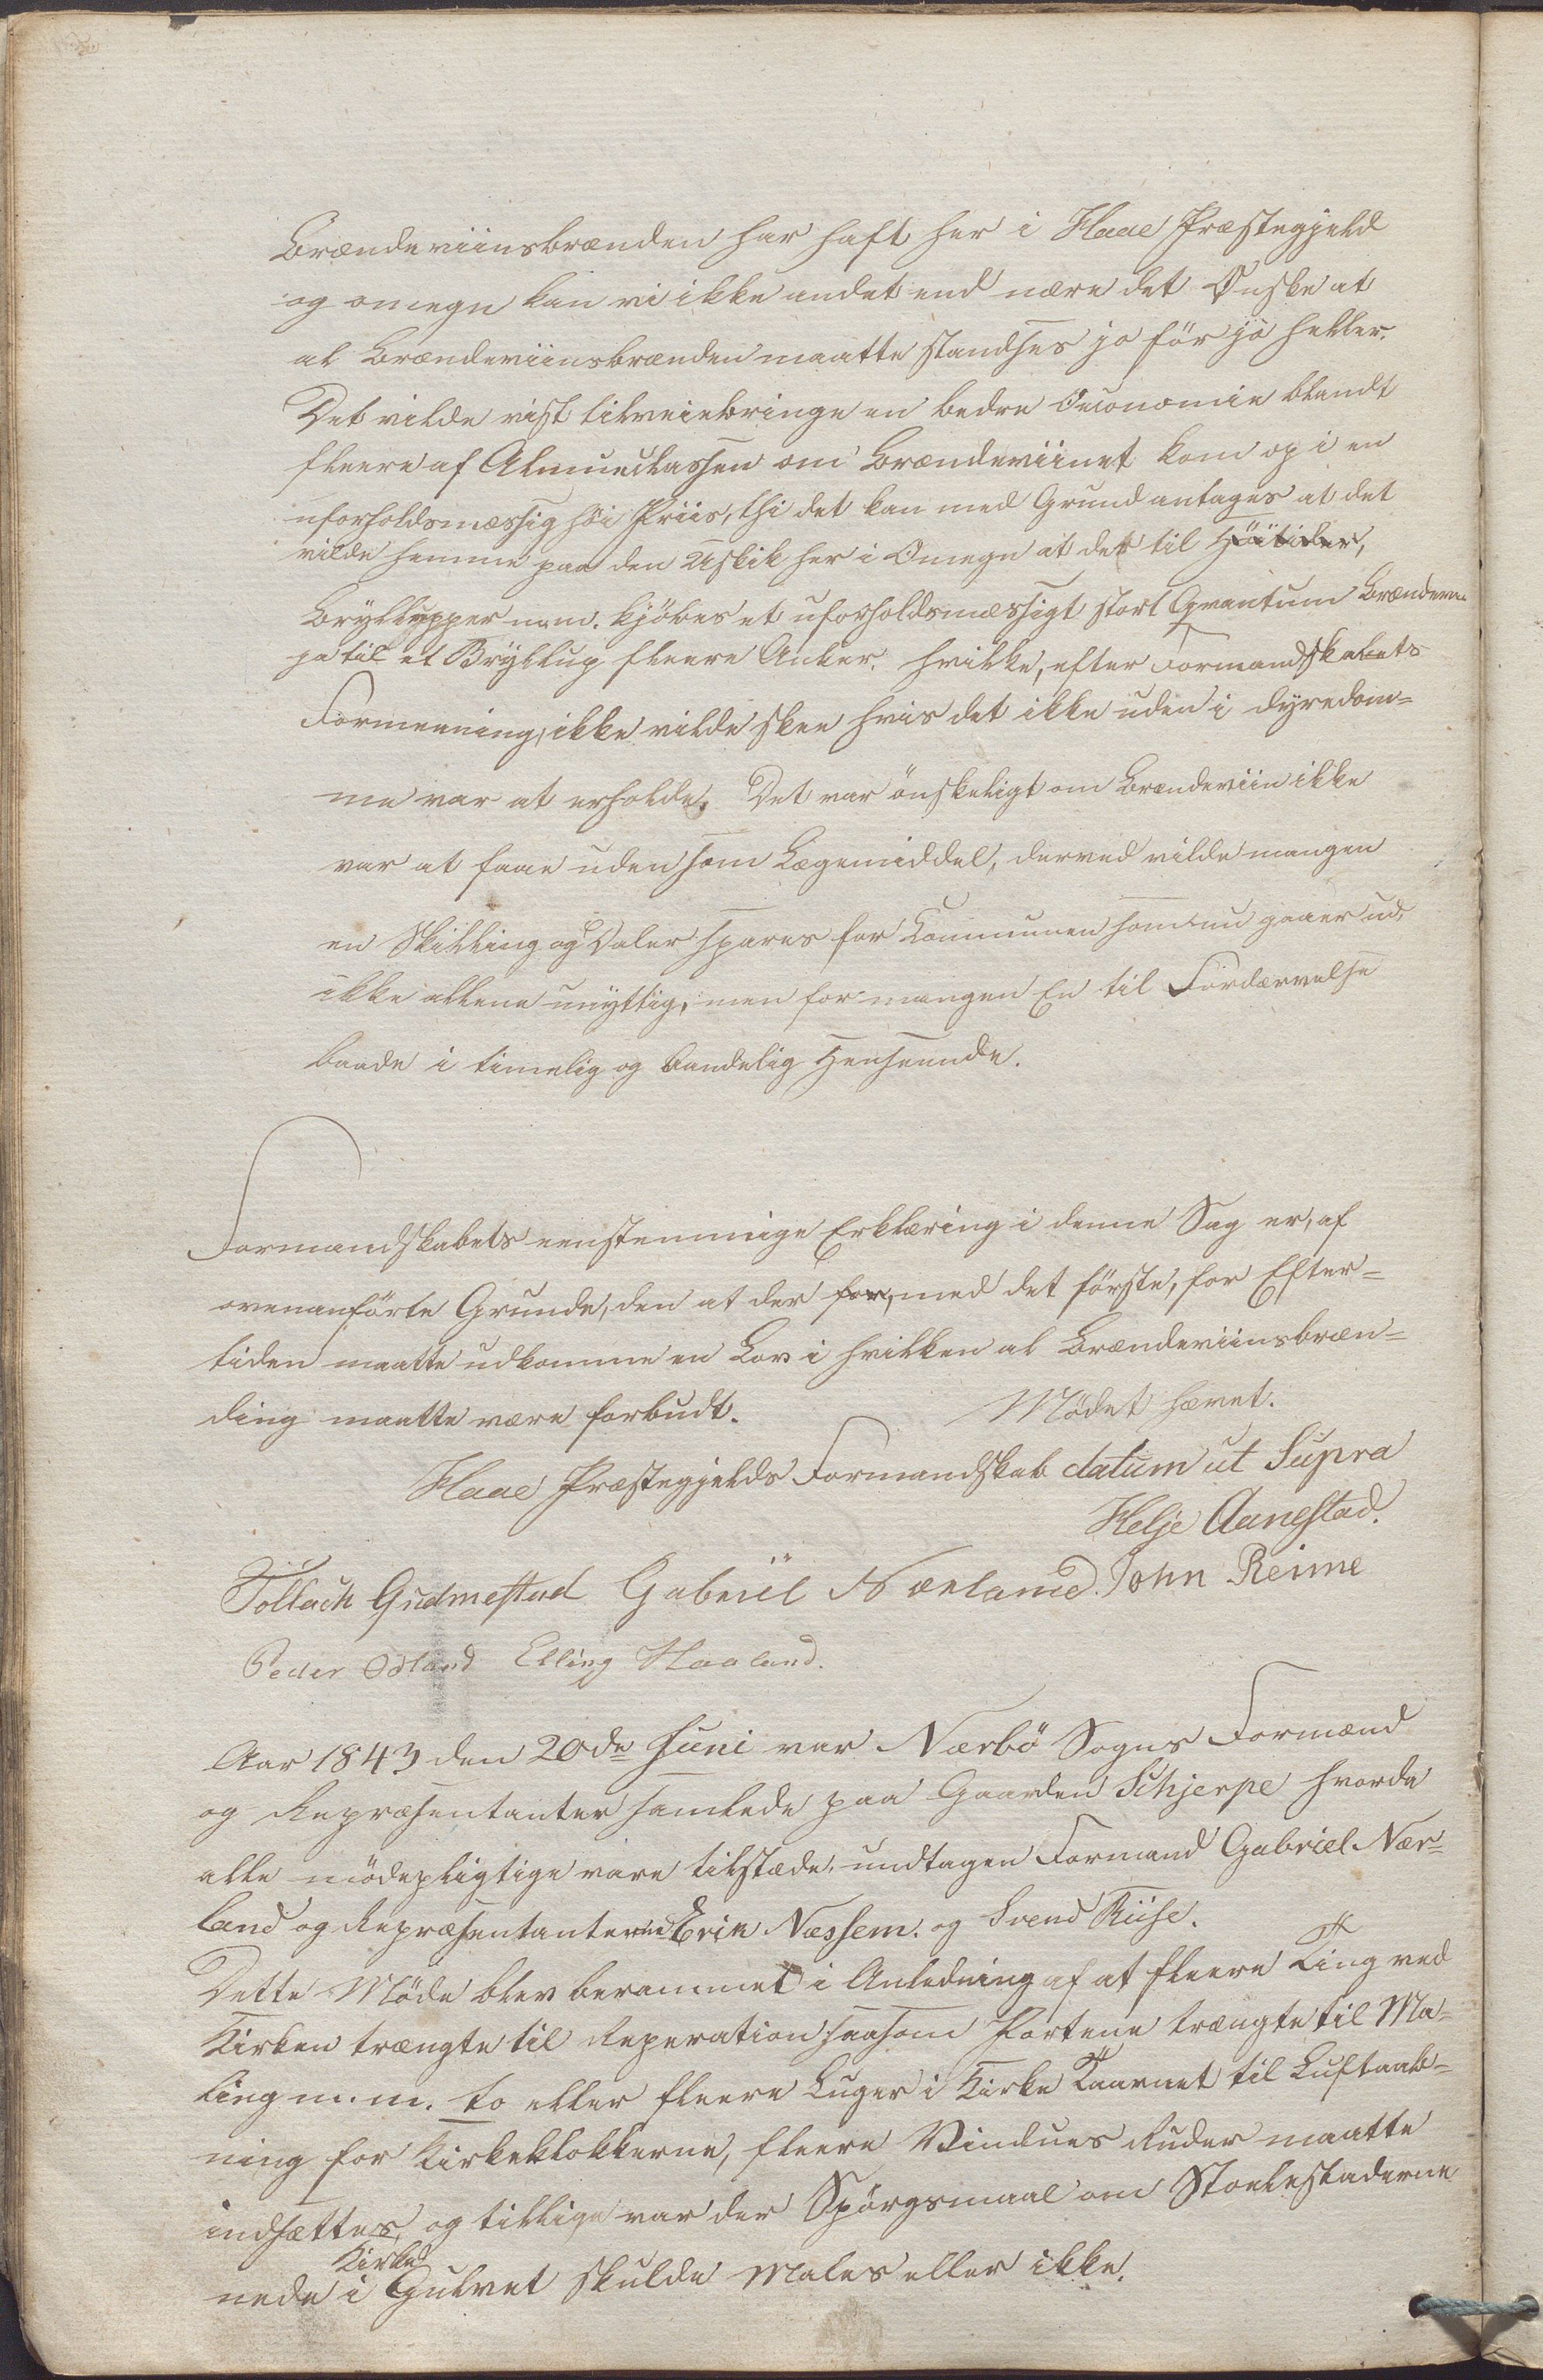 Brændeviinsbrænden har haft her i Haae Præstegjeld
og omegn kan vi ikke andet end nære det Ønske at
al Brændeviinsbrænden maatte standses jo för jo heller.
Det vilde vist tilveiebringe en bedre Oeconomie blandt
fleere af Almueclassen om Brændeviinet kom op i en
uforholdsmæssig höi Priis, thi det kan med Grund antages at det
vilde hemme paa den Uskik her i Omegn at det til Höitider,
Bryllupper m.m. kjöbes et uforholdsmæssigt stort Qvantum Brændev.
ja til et Bryllup fleere Anker. hvilke, efter Formandskabets
Formening, ikke vilde skee hvis det ikke uden i dyredom=
me var at erholde. Det var önskeligt om Brændeviin ikke
var at faae uden som Lægemiddel, derved vilde mangen
en Skilling og Daler spares for Communen som nu gaaer ud,
ikke allene unyttig, men for mangen En til Fordærvelse
baade i timelig og aandelig Henseende.
Formandskabets eenstemmige Erklæring i denne Sag er, af
ovenanförte Grunde, den at der for, med det förste, for Efter=
tiden maatte udkomme en Lov i hvilken al Brændeviinsbræn=
ding maatte være forbudt. Mödet hævet.
Haae Præstegjelds Formandskab datum ut Supra
Helje Aanestad.
Tollach Gudmestad Gabriel Nærland. John Reime
Peder Odland Elling Haaland.
Aar 1843 den 20de Juni var Nærbö Sogns Formænd
og Repræsentanter samlede paa Gaarden Schjerpe hvorda
alle mödepligtige vare tilstæde, undtagen Formand Gabriel Nær=
land og Repræsentanterne Erik Næssem. og Svend Riise.
Dette Möde blev berammet i Anledning af at fleere Ting ved
Kirken trængte til Reperation saasom Portene trængte til Ma=
ling m.m. to eller fleere Luger i Kirke Taarnet til Luftaab=
ning for Kirkeklokkerne, fleere Vindues Ruder maatte
indsættes, og tillige var der Spörgsmaal om Stolestaderne
nede i Kirke Gulvet skulde Males eller ikke.